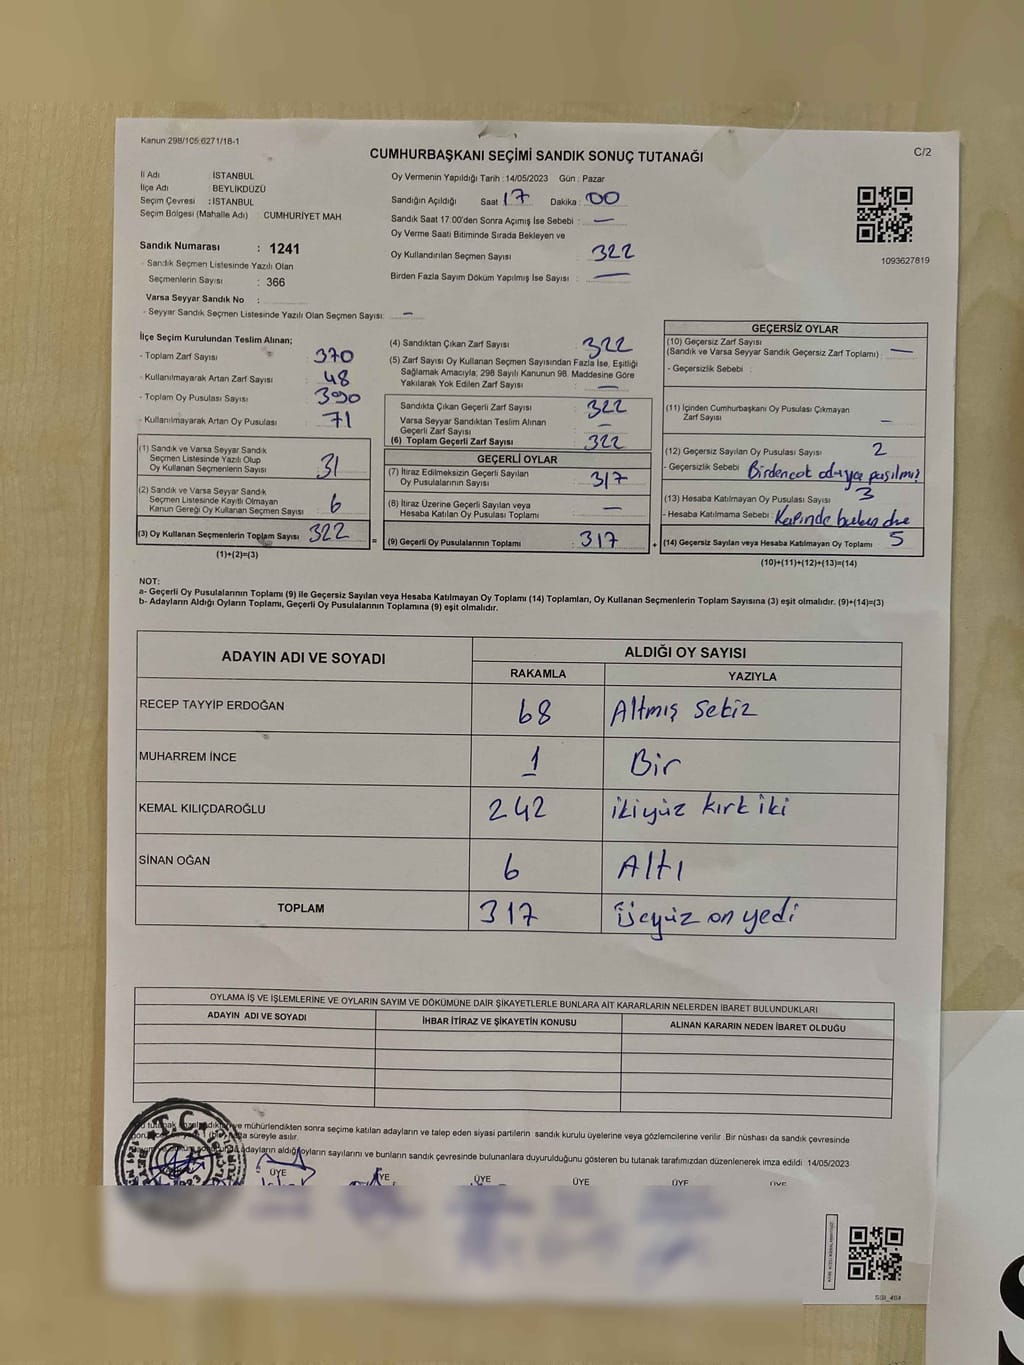 Kanun 298/105 6271/18-1
C/2
CUMHURBAŞKANI SEÇİMİ SANDIK SONUÇ TUTANAĞI
İl Adı İSTANBUL
İlçe Adı BEYLİKDÜZÜ
Seçim Çevresi : İSTANBUL
Seçim Bölgesi (Mahalle Adı) : CUMHURİYET MAH
Sandık Numarası : 1241
- Sandık Seçmen Listesinde Yazılı Olan
Seçmenlerin Sayısı : 366
Varsa Seyyar Sandık No :
- Seyyar Sandık Seçmen Listesinde Yazılı Olan Seçmen Sayısı: —
Oy Vermenin Yapıldığı Tarih : 14/05/2023 Gün : Pazar
Sandığın Açıldığı Saat 17 Dakika : 00
Sandık Saat 17.00'den Sonra Açımış İse Sebebi : —
Oy Verme Saati Bitiminde Sırada Bekleyen ve
Oy Kullandırılan Seçmen Sayısı : 322
Birden Fazla Sayım Döküm Yapılmış İse Sayısı : —
1093627819
İlçe Seçim Kurulundan Teslim Alınan;
- Toplam Zarf Sayısı 370
- Kullanılmayarak Artan Zarf Sayısı 48
- Toplam Oy Pusulası Sayısı 390
- Kullanılmayarak Artan Oy Pusulası 71
(1) Sandık ve Varsa Seyyar Sandık
Seçmen Listesinde Yazılı Olup
Oy Kullanan Seçmenlerin Sayısı 31
(2) Sandık ve Varsa Seyyar Sandık
Seçmen Listesinde Kayıtlı Olmayan
Kanun Gereği Oy Kullanan Seçmen Sayısı : 6
(3) Oy Kullanan Seçmenlerin Toplam Sayısı 322
(1)+(2)=(3)
(4) Sandıktan Çıkan Zarf Sayısı : 322
(5) Zarf Sayısı Oy Kullanan Seçmen Sayısından Fazla İse, Eşitliği
Sağlamak Amacıyla; 298 Sayılı Kanunun 98. Maddesine Göre
Yakılarak Yok Edilen Zarf Sayısı : —
Sandıkta Çıkan Geçerli Zarf Sayısı : 322
Varsa Seyyar Sandıktan Teslim Alınan
Geçerli Zarf Sayısı : —
(6) Toplam Geçerli Zarf Sayısı : 322
GEÇERLİ OYLAR
(7) İtiraz Edilmeksizin Geçerli Sayılan
Oy Pusulalarının Sayısı : 317
(8) İtiraz Üzerine Geçerli Sayılan veya
Hesaba Katılan Oy Pusulası Toplamı : —
= (9) Geçerli Oy Pusulalarının Toplamı : 317
GEÇERSİZ OYLAR
(10) Geçersiz Zarf Sayısı
(Sandık ve Varsa Seyyar Sandık Geçersiz Zarf Toplamı) : —
- Geçersizlik Sebebi :
(11) İçinden Cumhurbaşkanı Oy Pusulası Çıkmayan
Zarf Sayısı : —
(12) Geçersiz Sayılan Oy Pusulası Sayısı : 2
- Geçersizlik Sebebi
(13) Hesaba Katılmayan Oy Pusulası Sayısı : 3
- Hesaba Katılmama Sebebi :
+ (14) Geçersiz Sayılan veya Hesaba Katılmayan Oy Toplamı 5
(10)+(11)+(12)+(13)=(14)
NOT:
a- Geçerli Oy Pusulalarının Toplamı (9) ile Geçersiz Sayılan veya Hesaba Katılmayan Oy Toplamı (14) Toplamları, Oy Kullanan Seçmenlerin Toplam Sayısına (3) eşit olmalıdır. (9)+(14)=(3)
b- Adayların Aldığı Oyların Toplamı, Geçerli Oy Pusulalarının Toplamına (9) eşit olmalıdır.
ADAYIN ADI VE SOYADI
ALDIĞI OY SAYISI
RAKAMLA YAZIYLA
RECEP TAYYİP ERDOĞAN 68 Altmış Sekiz
MUHARREM İNCE 1 Bir
KEMAL KILIÇDAROĞLU 242 ikiyüz kırk iki
SİNAN OĞAN 6 Altı
TOPLAM 317 üçyüz on yedi
OYLAMA İŞ VE İŞLEMLERİNE VE OYLARIN SAYIM VE DÖKÜMÜNE DAİR ŞİKAYETLERLE BUNLARA AİT KARARLARIN NELERDEN İBARET BULUNDUKLARI
ADAYIN ADI VE SOYADI İHBAR İTİRAZ VE ŞİKAYETİN KONUSU ALINAN KARARIN NEDEN İBARET OLDUĞU
ve mühürlendikten sonra seçime katılan adayların ve talep eden siyasi partilerin sandık kurulu üyelerine veya gözlemcilerine verilir. Bir nüshası da sandık çevresinde
süreyle asılır.
adayların aldığı oyların sayılarını ve bunların sandık çevresinde bulunanlara duyurulduğunu gösteren bu tutanak tarafımızdan düzenlenerek imza edildi 14/05/2023
T.C.
ÜYE ÜYE ÜYE ÜYE ÜYE